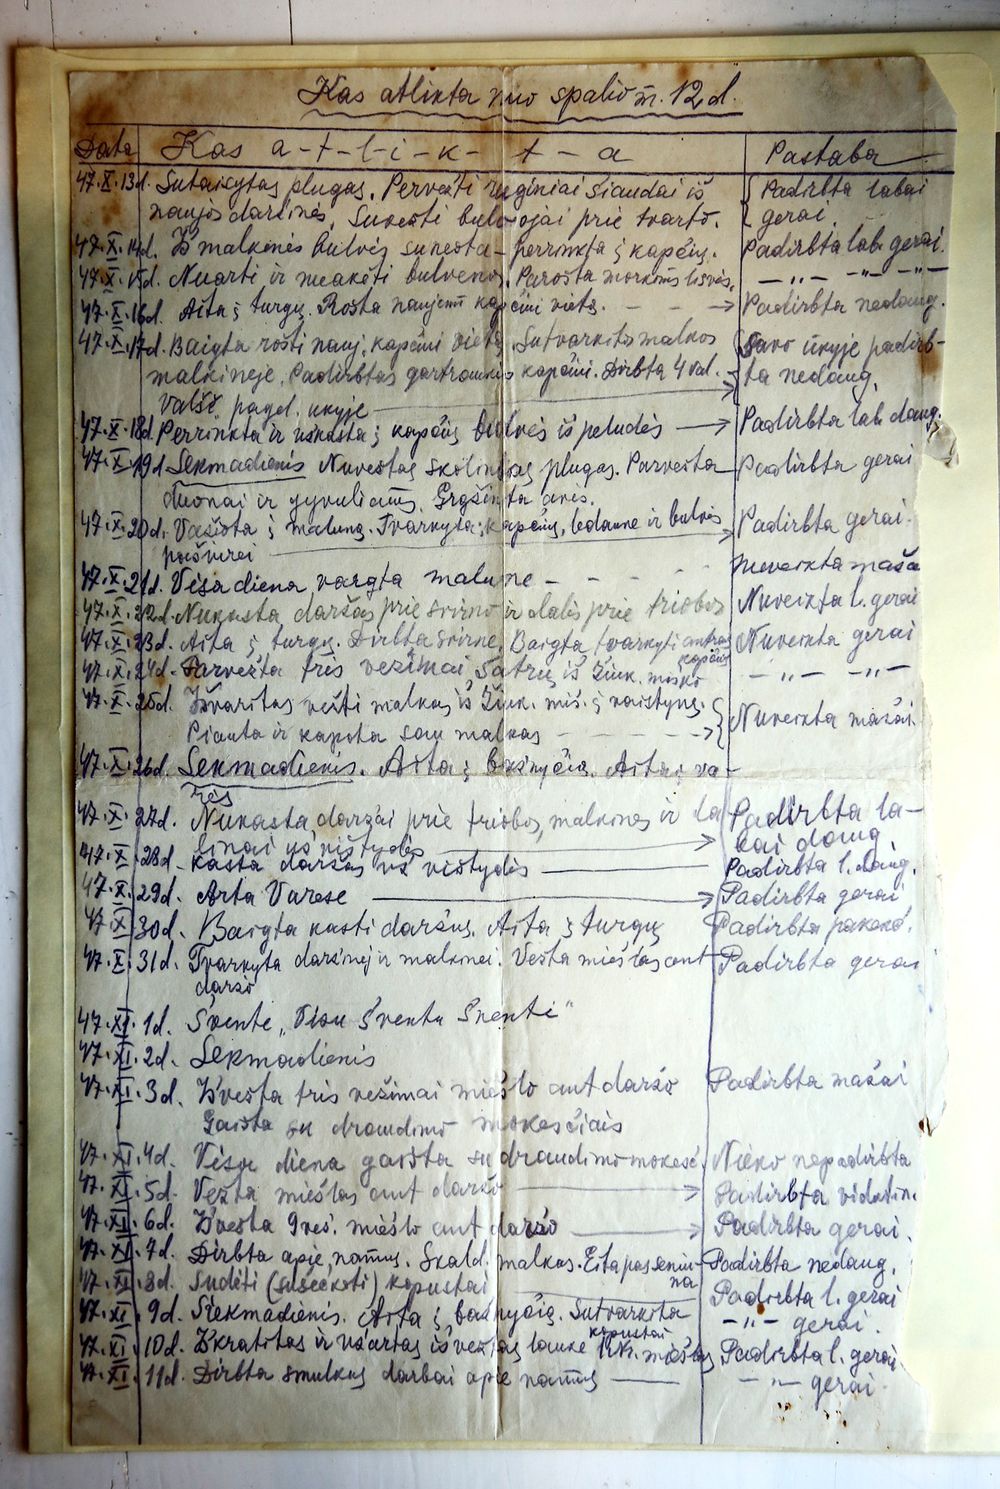 Kas atlikta nuo spalio m. 12 d.
Data Kas a-t-l-i-k-t-a Pastaba
47.X.13d. Sutaisytas plugas. Pervežti ruginiai šiaudai iš Padirbta labai
naujos daržinės. Suvesti buliojai prie tvarto. gerai.
47.X.14d. Iš malkinės bulvės sunešta - perrinkta į kapčių. Padirbta lab. gerai.
47.X.15d. Nuarti ir nuakėti bulvenos. Parošta morkoms lisvės. -„- -„- -„-
47.X.16d. Aita į turgų. Rošta naujam kapčiui vieta. Padirbta nedaug.
47.X.17d. Baigta rošti nauj. kapčiui vieta. Sutvarkitos malkos Savo ūkyje padirb-
malkinėje. Padirbtas gartraukis kapčiui. Dirbta 4 val. ta nedaug.
Valsč. pagd. ukyje
47.X.18d. Perrinkta ir užkasta į kapčių bulvės iš peludės Padirbta lab. daug.
47.X.19d. Sekmadienis Nuvežtas skolintas plugas. Parvežta Padirbta gerai
duonai ir gyvuliams. Grąžinta avis.
47.X.20d. Važiota į maluną. Tvarkyta į kapčių, ledaunė ir bulvės Padirbta gerai.
pašvirei
47.X.21d. Visa diena vargta malune - - - - - nuveikta mažai
47.X.22d. Nukasta daržas prie svirno ir dalis prie triobos Nuveikta l. gerai
47.X.23d. Aita į turgų. Dirbta svirne. Baigta tvarkyti antras Nuveikta gerai
kapčius
47.X.24d. Parvežta tris vežimai šatrų iš Žiuk. miško -„- -„-
47.X.25d. Išvaritas vežti malkas iš Žiuk. miš. į vaistynę. Nuveikta mažai.
Piauta ir kapota sau malkos
47.X.26d. Sekmadienis. Aita į bažnyčią. Aita į va-
rės
47.X.27d. Nukasta daržai prie triobos, malkinės ir da Padirbta la-
linai už vištydės bai daug
47.X.28d. Kasta daržas už vištydės Padirbta l. daug.
47.X.29d. Arta Varese Padirbta gerai
47.X.30d. Baigta kasti daržus. Aita į turgų Padirbta pakenč.
47.X.31d. Tvarkyta daržinėj ir malkinei. Vešta mieślas ant Padirbta gerai
daržo
47.XI.1d. Švente „Visu Šventu Šventi"
47.XI.2d. Sekmadienis
47.XI.3d. Išvešta tris vežimai mieślo ant daržo Padirbta mažai
Gaišta su draudimo mokesčiais
47.XI.4d. Visa diena gaišta su draudimo mokesč. Nieko nepadirbta
47.XI.5d. Vežta mieślas ant daržo Padirbta vidutin.
47.XI.6d. Išvešta 9 vež. mieślo ant daržo Padirbta gerai.
47.XI.7d. Dirbta apie namus. Skald. malkos. Eita pas seniu- Padirbta nedaug.
na
47.XI.8d. Sudėti (subečkoti) kopustai Padirbta l. gerai
47.XI.9d. Sekmadienis. Aita į bažnyčią. Sutvarkita -„- gerai.
kopustai
47.XI.10d. Iškratitas ir užartas išvežtas lauke mieślas Padirbta l. gerai.
47.XI.11d. Dirbta smulkus darbai apie namus -„- gerai.